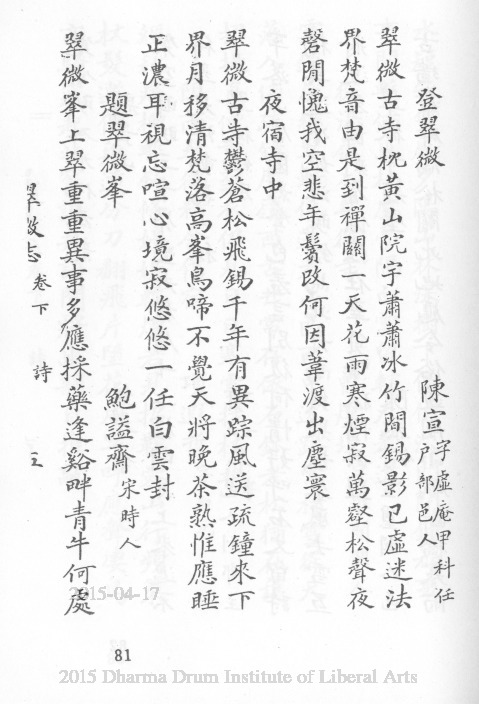 登翠微　陳宣字虛庵甲科任戶部邑人
翠微古寺枕黃山院宇蕭蕭冰竹間錫影已虛迷法
界梵音由是到禪關一天花雨寒煙寂萬壑松聲夜
磬閒愧我空悲年鬢改何因葦渡出塵寰
夜宿寺中
翠微古寺鬱蒼松飛錫千年有異踪風送疏鐘來下
界月移清梵落高峯鳥啼不覺天將晚茶熟惟應睡
正濃耳視忘喧心境寂悠悠一任白雲封
題翠微峯　鮑謚齋宋時人
翠微峯上翠重重異事多應採藥逢谿畔青牛何處
翠微志　卷下　詩
81
2015-04-17
2015 Dharma Drum Institute of Liberal Arts